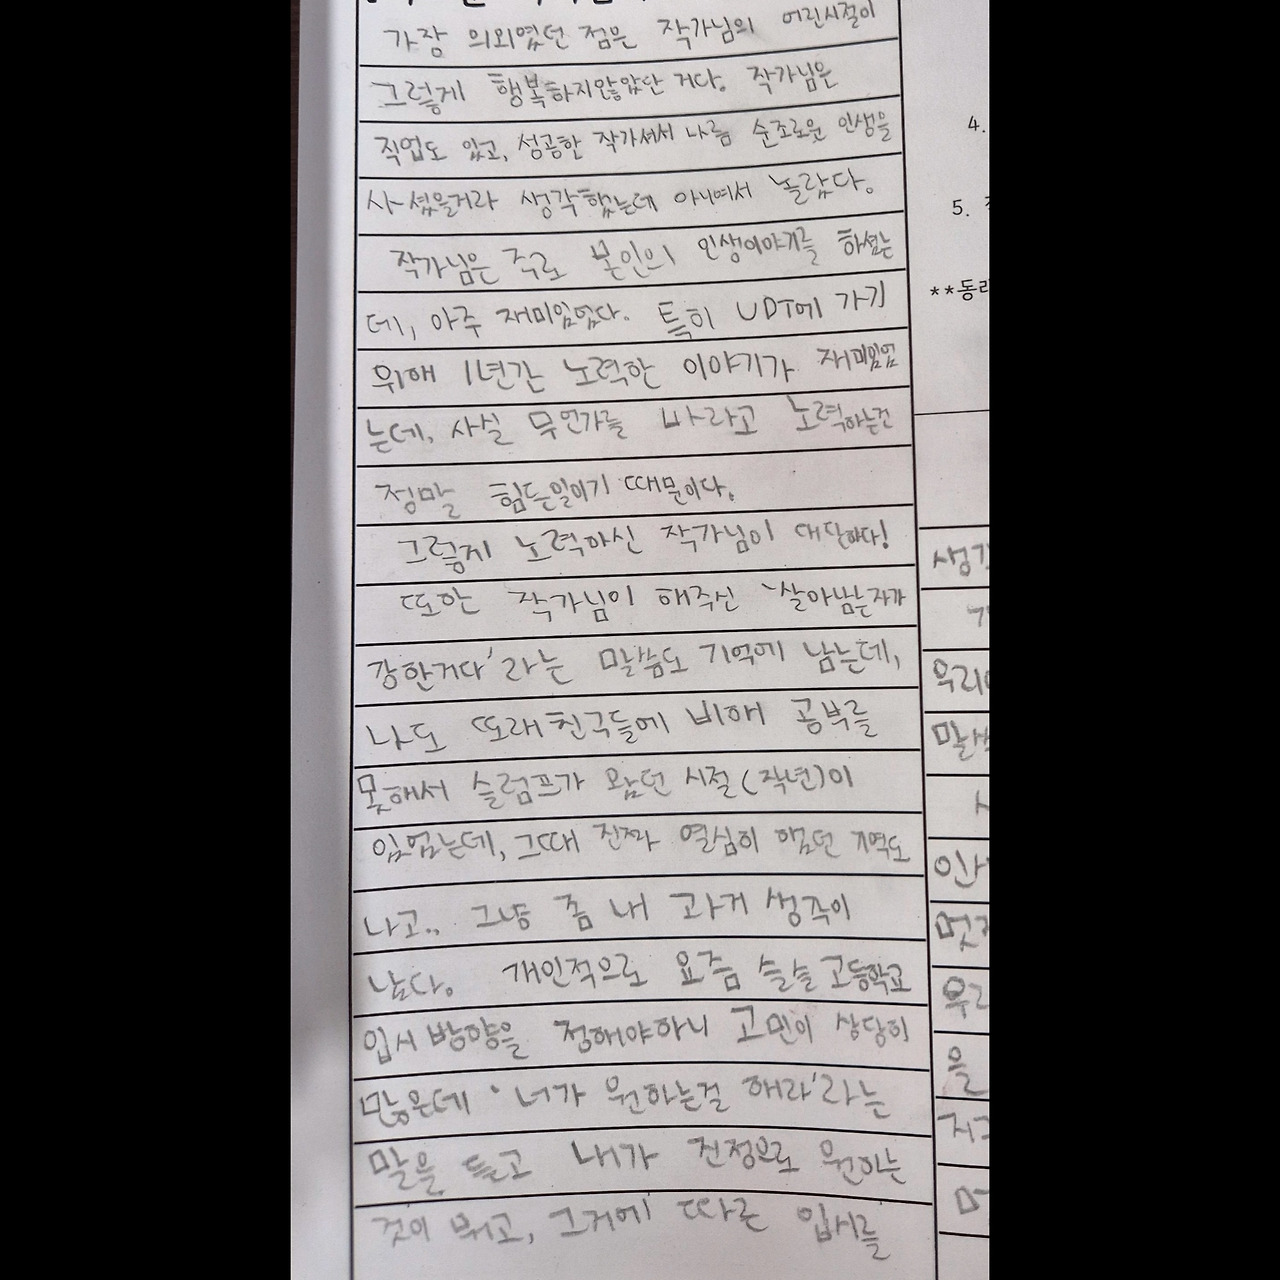 가장 의외였던 점은 작가님의 어린시절이
그렇게 행복하지않았단 거다. 작가님은
직업도 있고, 성공한 작가셔서 나름 순조로운 인생을
사셨을거라 생각했는데 아니여서 놀랐다.
작가님은 주로 본인의 인생이야기를 하셨는
데, 아주 재미있었다. 특히 UDT에 가기
위해 1년간 노력한 이야기가 재미있었
는데, 사실 무언가를 바라고 노력하는건
정말 힘든일이기 때문이다.
그렇게 노력하신 작가님이 대단하다!
또한 작가님이 해주신 '살아남는자가
강한거다'라는 말씀도 기억에 남는데,
나도 또래친구들에 비해 공부를
못해서 슬럼프가 왔던 시절(작년)이
있었는데, 그때 진짜 열심히 했던 기억도
나고.. 그냥 좀 내 과거 생각이
났다. 개인적으로 요즘 슬슬 고등학교
입시 방향을 정해야하니 고민이 상당히
많은데 '너가 원하는걸 해라'라는
말을 듣고 내가 진정으로 원하는
것이 뭐고, 그거에 따른 입시를
4.
5.
**동
생각
우리
말씀
인
멋지
우리
을